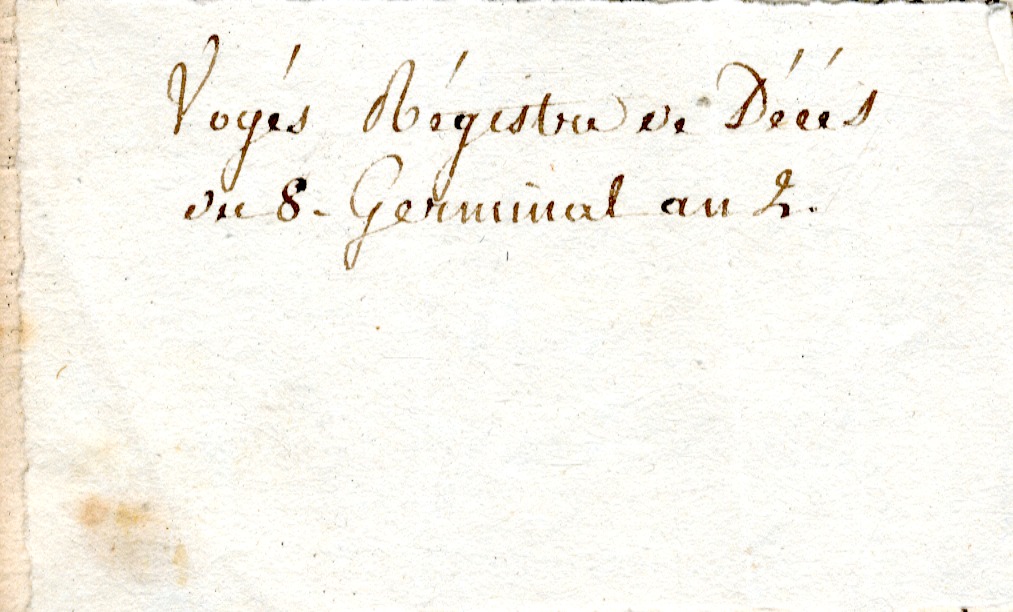 Voyés Régistre de Décés
du 8. Germinal an 2.